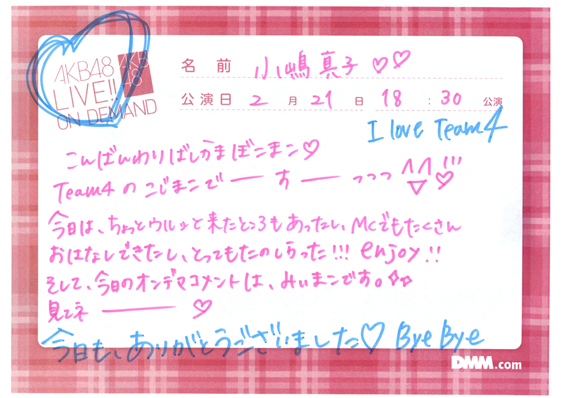 AKB48
LIVE!!
ON DEMAND
AKB
48
名前 小嶋真子 ♡♡
公演日 2月21日 18:30 公演
I love Team4
こんばんわりばしかまぼこまこ♡
Team4のこじまこで──す──っっっ
今日は、ちょっとウルッと来たところもあったし、MCでもたくさん
おはなしできたし、とってもたのしらった!!! enjoy!!
そして、今日のオンデマコメントは、みぃまこです。
見てネ────♡
今日も、ありがとうございました♡ Bye Bye
DMM.com